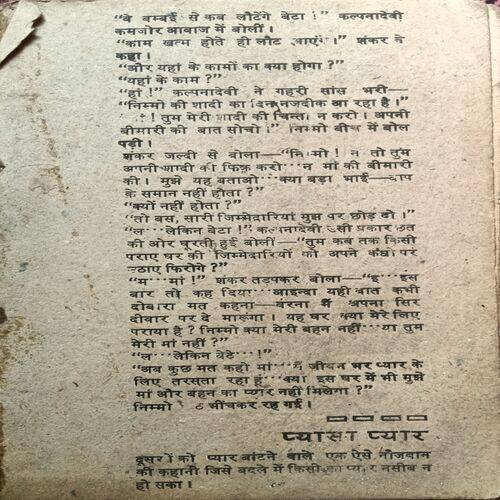 “वे बम्बई से कब लौटेंगे बेटा !” कल्पनादेवी
कमजोर आवाज में बोलीं।
“काम खत्म होते ही लौट आएंगे।” शंकर ने
कहा।
“और यहां के कामों का क्या होगा ?”
“यहां के काम ?”
“हां !” कल्पनादेवी ने गहरी सांस भरी—
“निम्मो की शादी का दिन नजदीक आ रहा है।”
! तुम मेरी शादी की चिन्ता न करो। अपनी
बीमारी की बात सोचो।” निम्मो बीच में बोल
पड़ी।
शंकर जल्दी से बोला—“निम्मो ! न तो तुम
अपनी शादी की फिक्र करो···न मां की बीमारी
की। मुझे यह बताओ···क्या बड़ा भाई—बाप
के समान नहीं होता ?”
“क्यों नहीं होता ?”
“तो बस, सारी जिम्मेदारियां मुझ पर छोड़ दो।”
“ल···लेकिन बेटा !” कल्पनादेवी उसी प्रकार छत
की ओर घूरती हुई बोलीं—“तुम कब तक किसी
पराए घर की जिम्मेदारियों को अपने कंधों पर
उठाए फिरोगे ?”
“म···मां !” शंकर तड़पकर बोला—“इ···इस
बार तो कह दिया···आइन्दा यही बात कभी
दोबारा मत कहना—वरना मैं अपना सिर
दीवार पर दे मारूंगा। यह घर क्या मेरे लिए
पराया है ? निम्मो क्या मेरी बहन नहीं···या तुम
मेरी मां नहीं ?”
“ल···लेकिन बेटे···!”
“अब कुछ मत कहो मां···मैं जीवन भर प्यार के
लिए तरसता रहा हूं···क्या इस घर में भी मुझे
मां और बहन का प्यार नहीं मिलेगा ?”
निम्मो भींचकर रह गई।
प्यासा प्यार
दूसरों को प्यार बांटने वाले एक ऐसे नौजवान
की कहानी जिसे बदले में किसी का प्यार नसीब न
हो सका।